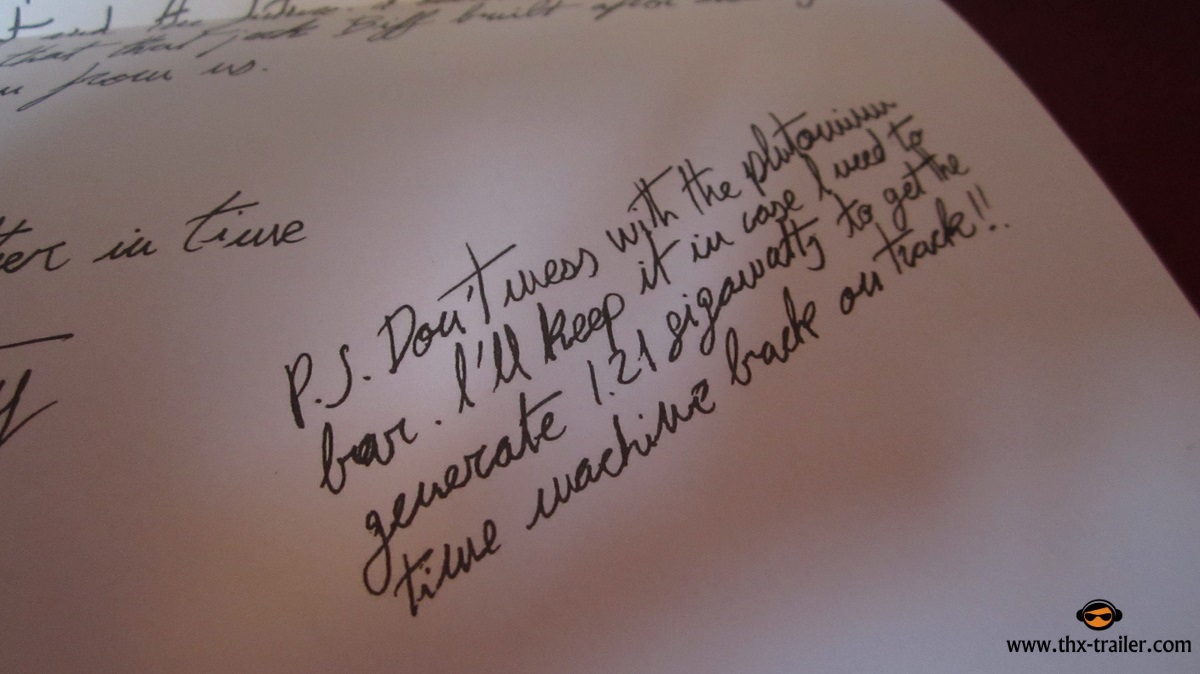 and the
that that jack Biff built after
from us.
in time
P.S. Don't mess with the plutonium
bar. I'll keep it in case I need to
generate 1.21 gigawatts to get the
time machine back on track!!
www.thx-trailer.com